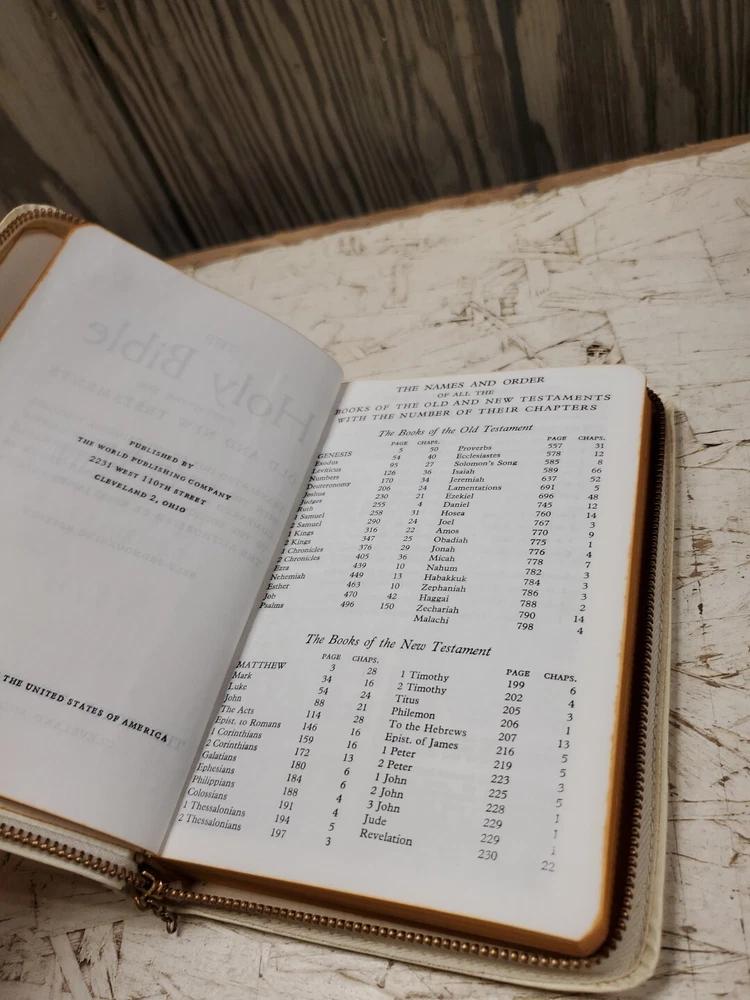 PUBLISHED BY
THE WORLD PUBLISHING COMPANY
2231 WEST 110TH STREET
CLEVELAND 2, OHIO
THE UNITED STATES OF AMERICA
THE NAMES AND ORDER
OF ALL THE
BOOKS OF THE OLD AND NEW TESTAMENTS
WITH THE NUMBER OF THEIR CHAPTERS
The Books of the Old Testament
PAGE CHAPS.
GENESIS 5 50
Exodus 54 40
Leviticus 95 27
Numbers 126 36
Deuteronomy 170 34
Joshua 206 24
Judges 230 21
Ruth 255 4
1 Samuel 258 31
2 Samuel 290 24
1 Kings 316 22
2 Kings 347 25
1 Chronicles 376 29
2 Chronicles 405 36
Ezra 439 10
Nehemiah 449 13
Esther 463 10
Job 470 42
Psalms 496 150
PAGE CHAPS.
Proverbs 557 31
Ecclesiastes 578 12
Solomon's Song 585 8
Isaiah 589 66
Jeremiah 637 52
Lamentations 691 5
Ezekiel 696 48
Daniel 745 12
Hosea 760 14
Joel 767 3
Amos 770 9
Obadiah 775 1
Jonah 776 4
Micah 778 7
Nahum 782 3
Habakkuk 784 3
Zephaniah 786 3
Haggai 788 2
Zechariah 790 14
Malachi 798 4
The Books of the New Testament
PAGE CHAPS.
MATTHEW 3 28
Mark 34 16
Luke 54 24
John 88 21
The Acts 114 28
Epist. to Romans 146 16
1 Corinthians 159 16
2 Corinthians 172 13
Galatians 180 6
Ephesians 184 6
Philippians 188 4
Colossians 191 4
1 Thessalonians 194 5
2 Thessalonians 197 3
PAGE CHAPS.
1 Timothy 199 6
2 Timothy 202 4
Titus 205 3
Philemon 206 1
To the Hebrews 207 13
Epist. of James 216 5
1 Peter 219 5
2 Peter 223 3
1 John 225 5
2 John 228 1
3 John 229 1
Jude 229 1
Revelation 230 22